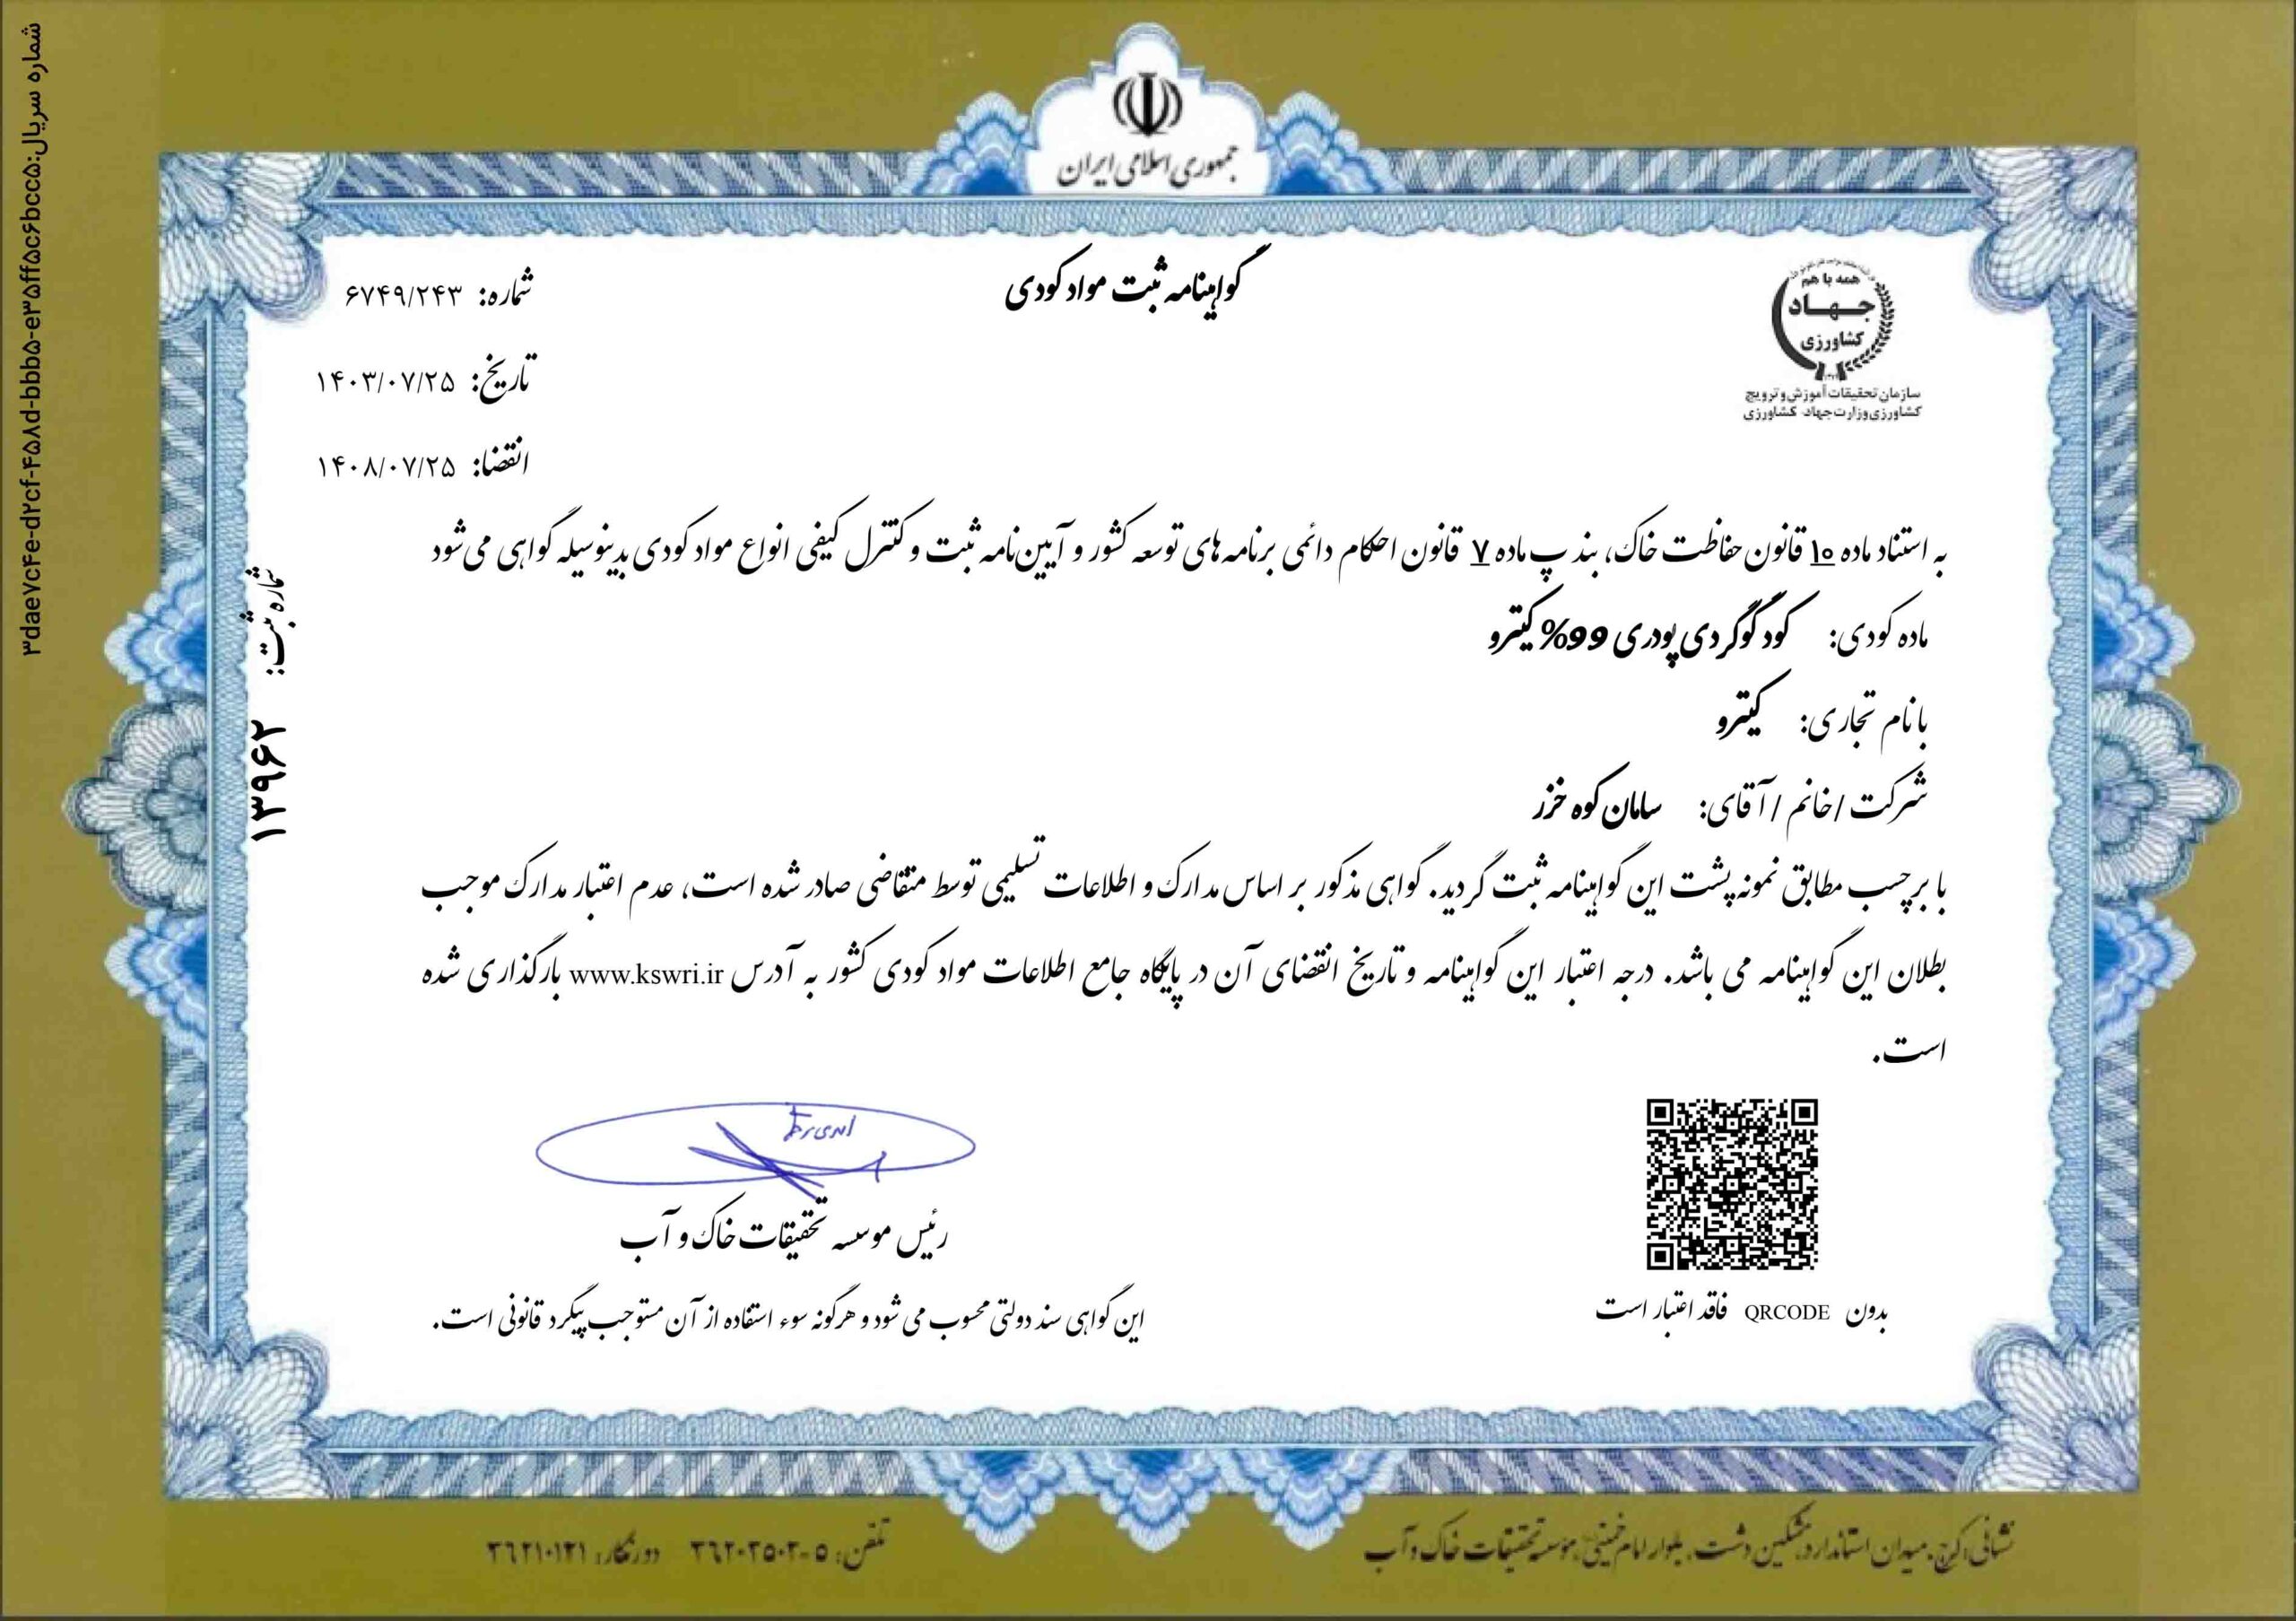 جمهوری اسلامی ایران
همه با هم
جهاد
کشاورزی
سازمان تحقیقات آموزش و ترویج
کشاورزی وزارت جهاد کشاورزی
گواهینامه ثبت مواد کودی
شماره: ۶۷۴۹/۲۴۳
تاریخ: ۱۴۰۳/۰۷/۲۵
انقضا: ۱۴۰۸/۰۷/۲۵
به استناد ماده ۱۰ قانون حفاظت خاک، بند پ ماده ۷ قانون احکام دائمی برنامه های توسعه کشور و آیین نامه ثبت و کنترل کیفی انواع مواد کودی بدینوسیله گواهی می شود
ماده کودی: کود گوگردی پودری 99% کیترو
با نام تجاری: کیترو
شرکت / خانم / آقای: سامان کوه خزر
با برچسب مطابق نمونه پشت این گواهینامه ثبت گردید. گواهی مذکور بر اساس مدارک و اطلاعات تسلیمی توسط متقاضی صادر شده است، عدم اعتبار مدارک موجب
بطلان این گواهینامه می باشد. درجه اعتبار این گواهینامه و تاریخ انقضای آن در پایگاه جامع اطلاعات مواد کودی کشور به آدرس www.kswri.ir بارگذاری شده
است.
رئیس موسسه تحقیقات خاک و آب
بدون QRCODE فاقد اعتبار است
این گواهی سند دولتی محسوب می شود و هرگونه سوء استفاده از آن مستوجب پیگرد قانونی است.
شماره ثبت: ۱۳۹۶۲
شماره سریال:۳dae۷c۴e-d۲cf-۴۵۸d-bbb۵-e۳۵ff۵c۶bcc۵
نشانی: کرج، میدان استاندارد، مشکین دشت، بلوار امام خمینی، موسسه تحقیقات خاک و آب
تلفن: ۵-۳۶۲۰۳۵۰۲ دورنگار: ۳۶۲۱۰۱۲۱